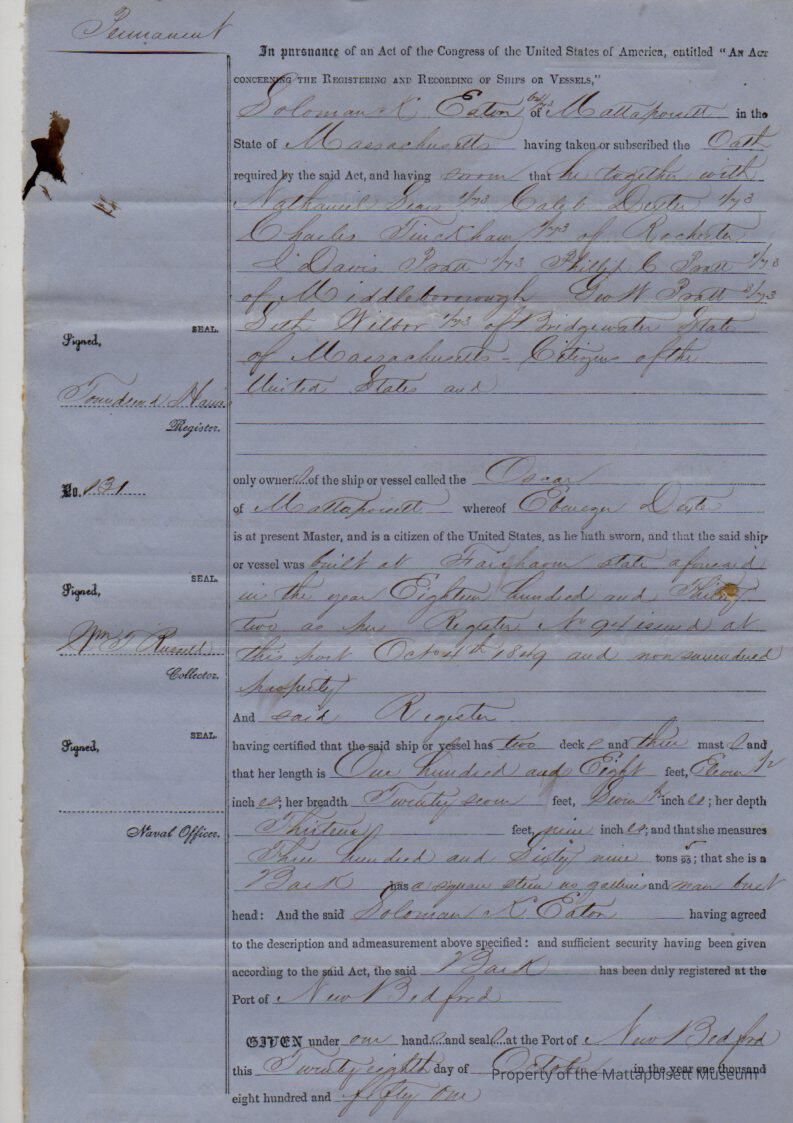 Permanent
In pursuance of an Act of the Congress of the United States of America, entitled "AN ACT
CONCERNING THE REGISTERING AND RECORDING OF SHIPS OR VESSELS,"
Soloman K Eaton of Mattapoisett in the
State of Massachusetts having taken or subscribed the Oath
required by the said Act, and having sworn that he together with
Nathaniel Sears 1/73 Caleb Dexter 1/73
Charles Tinckham of Rochester
Davis Pratt 1/73 Philip C Pratt 1/73
of Middleborough Geo W Pratt 8/73
Seth Wilbor 1/73 of Bridgewater State
of Massachusetts - Citizens of the
United States and
SEAL.
Signed,
Townsend
Register.
only owners of the ship or vessel called the Oscar
No. 131
of Mattapoisett whereof Ebenezer Dexter
is at present Master, and is a citizen of the United States, as he hath sworn, and that the said ship
or vessel was built at Fairhaven state aforesaid
SEAL.
Signed,
in the year Eighteen hundred and Thirty
two as per Register No 91 issued at
Wm T Russell
this port Oct 4th 1849 and now surrendered
Collector.
property
And said Register
SEAL.
Signed,
having certified that the said ship or vessel has two decks and three masts and
that her length is One hundred and Eight feet, Eleven 1/2
inches; her breadth Twenty seven feet, Seven 1/2 inches; her depth
Naval Officer.
Thirteen feet, nine inches; and that she measures
Three hundred and Sixty nine tons 95; that she is a
Bark has a square stern no galleries and man bust
head: And the said Soloman K. Eaton having agreed
to the description and admeasurement above specified: and sufficient security having been given
according to the said Act, the said Bark has been duly registered at the
Port of New Bedford
GIVEN under our hands and seals at the Port of New Bedford
this Twenty eighth day of October in the year one thousand
Property of the Mattapoisett Museum
eight hundred and fifty one